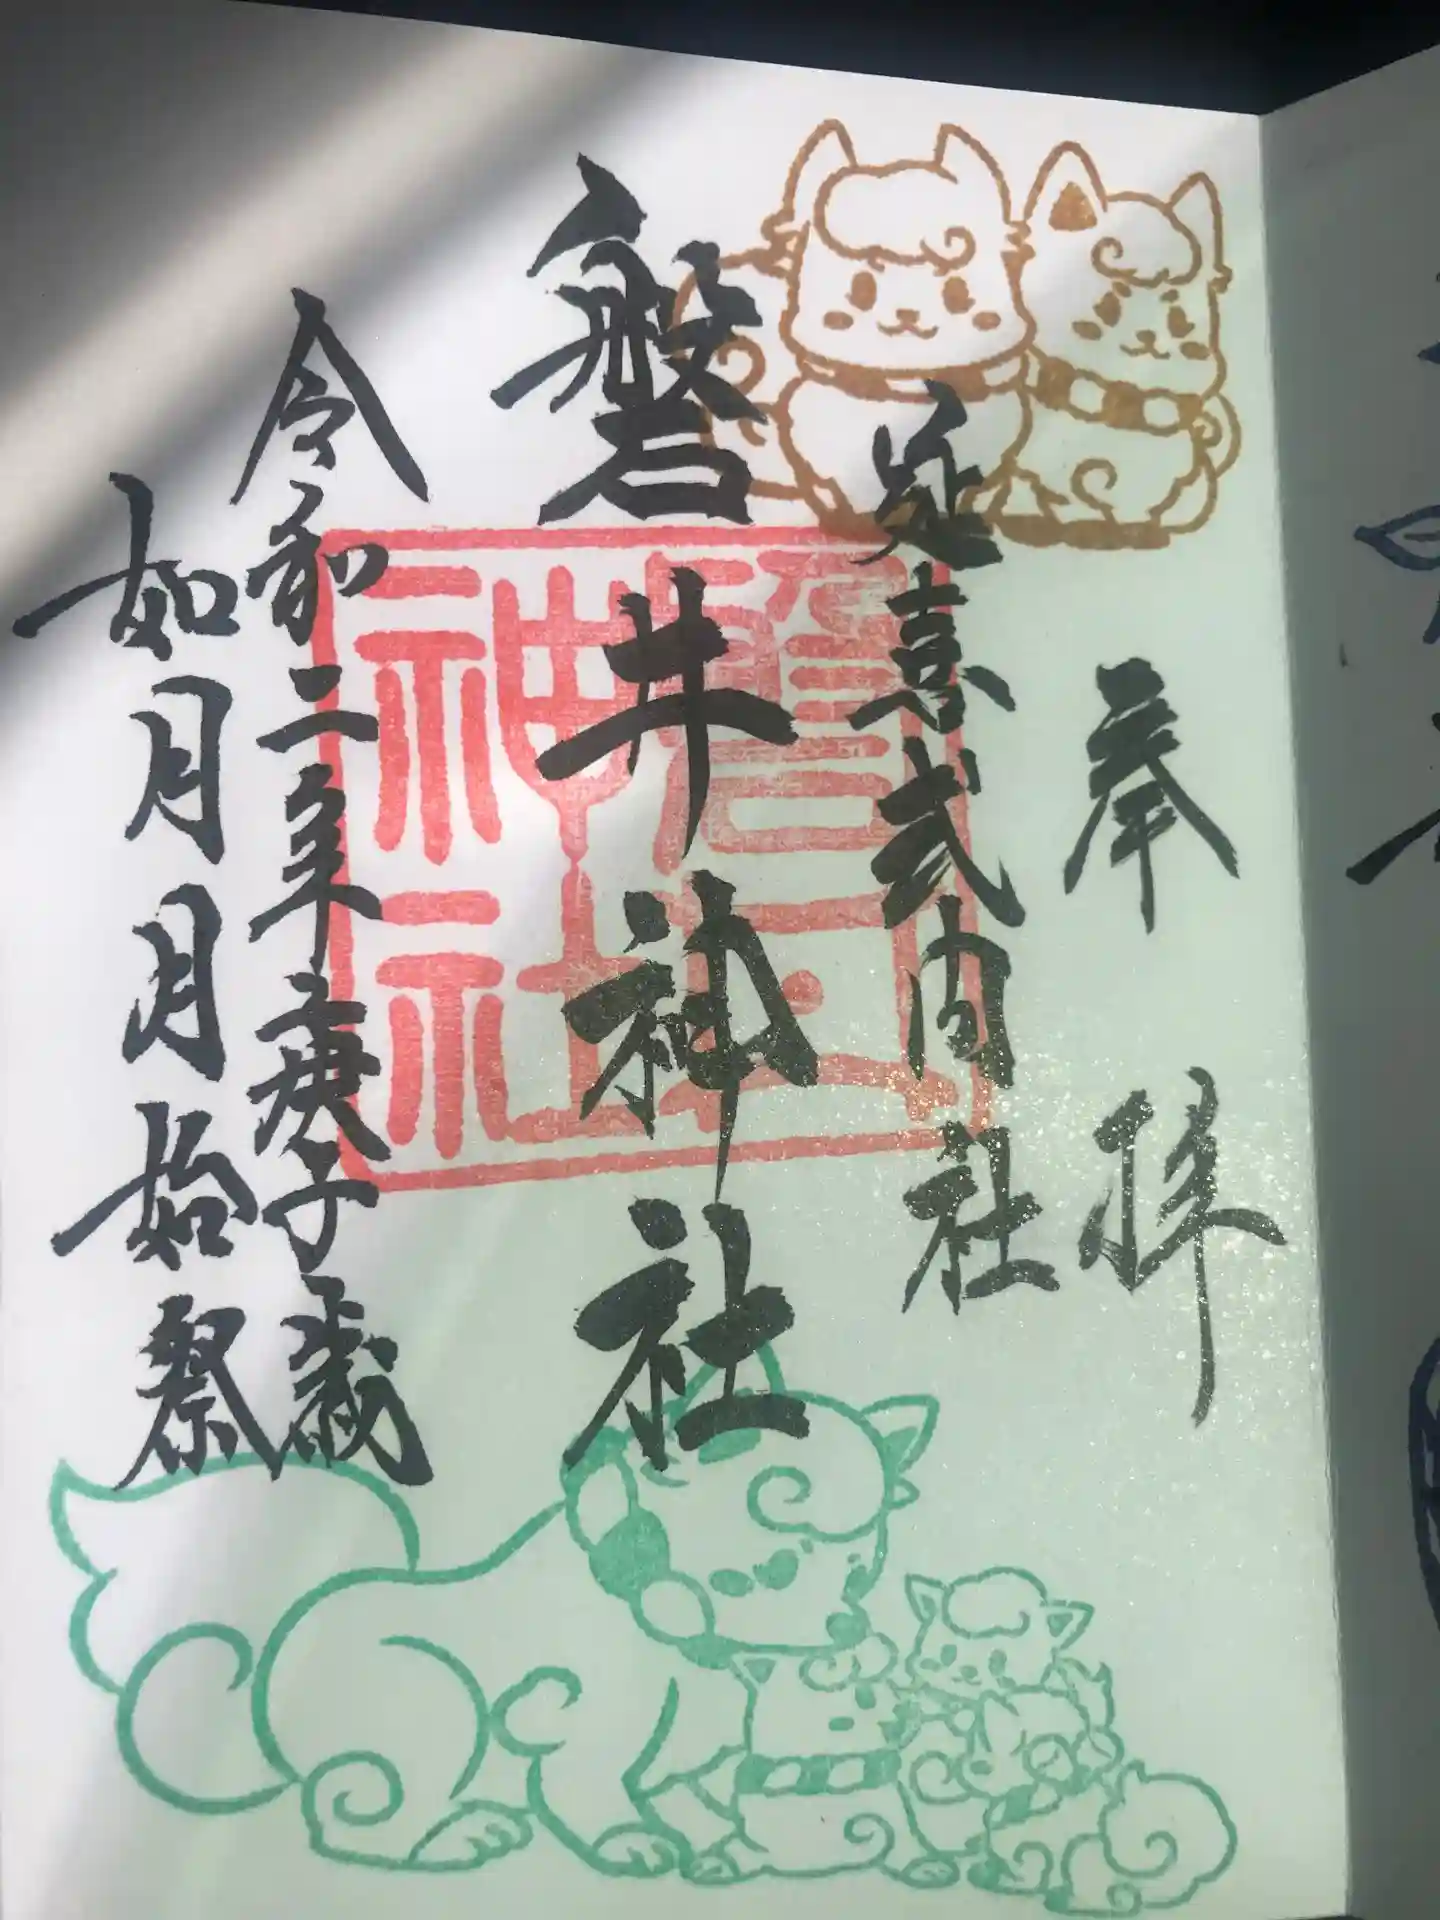 奉拝
延喜式内社
磐井神社
令和二年庚子歳
如月月始祭
磐井神社